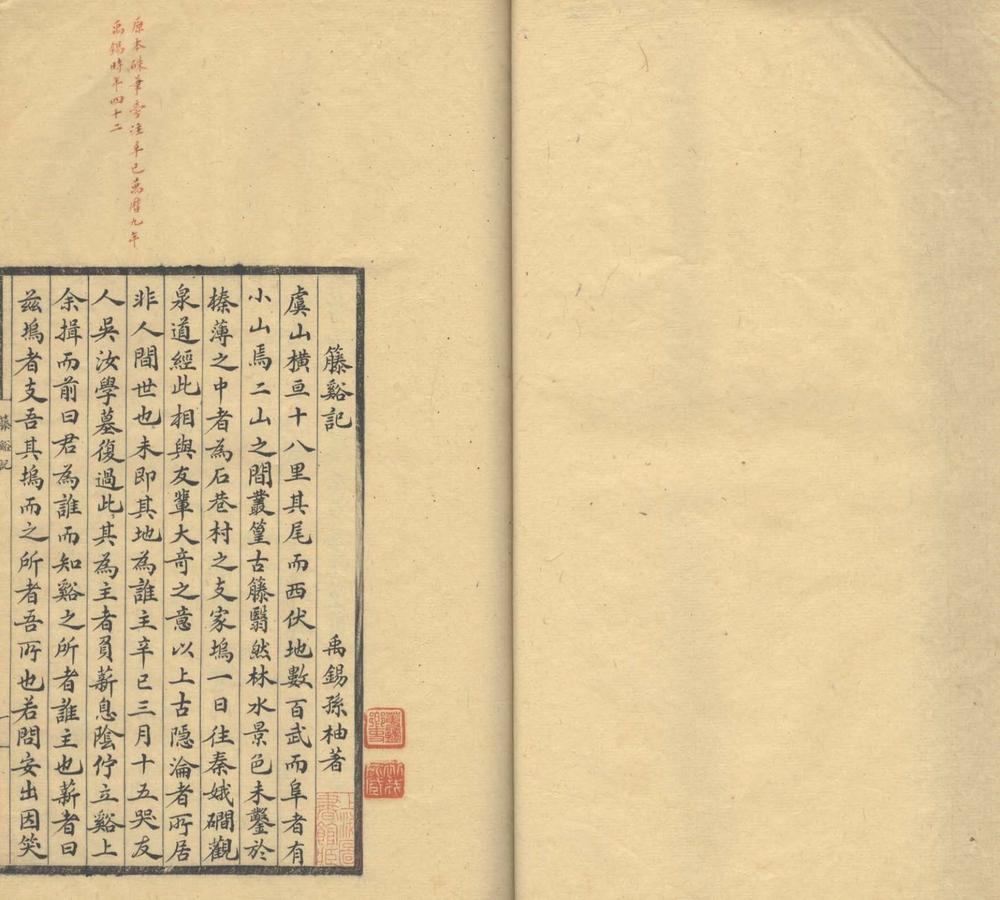 原本硃筆旁注辛巳萬曆九年
禹錫時年四十二
籐谿記
禹錫孫柚著
虞山橫亘十八里其尾而西伏地數百武而阜者有
小山焉二山之間叢篁古籐翳然林水景色未鑿於
榛薄之中者為石巷村之支家塢一日往秦娥磵觀
泉道經此相與友輩大奇之意以上古隱淪者所居
非人間世也未即其地為誰主辛巳三月十五哭友
人吳汝學墓復過此其為主者負薪息陰佇立谿上
余揖而前曰君為誰而知谿之所者誰主也薪者曰
茲塢者支吾其塢而之所者吾所也若問安出因笑
籐谿記